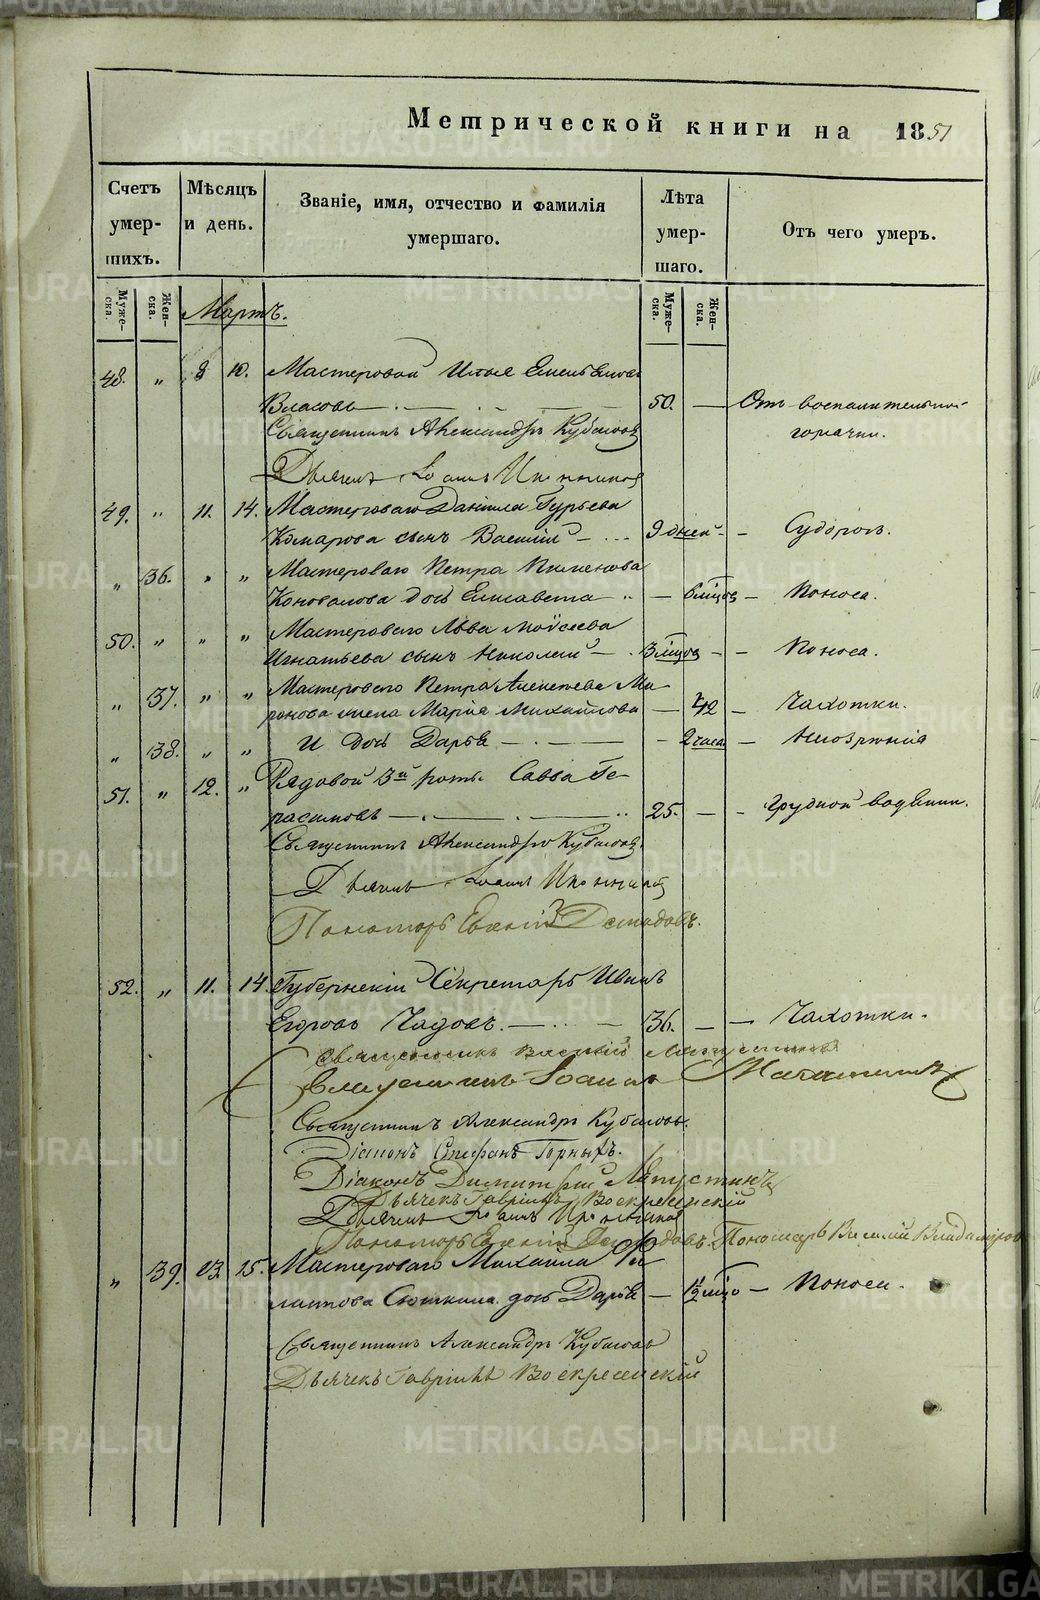 Метрической книги на 1851
Счетъ умершихъ. Мѣсяцъ и день. Званіе, имя, отчество и фамилія умершаго. Лѣта умершаго. Отъ чего умеръ.
Мужеска. Женска. Мужеска. Женска.
Мартъ.
48. „ 8 10. Мастеровой Илья Емельяновъ
Власовъ — 50. — Отъ воспалительной
горячки.
Священникъ Александръ
Дьячекъ Іоаннъ Иконниковъ
49. „ 11. 14. Мастероваго Даніила Гурьева
Комарова сынъ Василій — 9 дней — Судорогъ.
„ 36. „ „ Мастероваго Петра Пименова
Коновалова дочь Елисавета — 6 мцов — Поноса.
50. „ „ „ Мастероваго Льва Моисеева
Игнатьева сынъ Николай — 3 мцов — Поноса.
„ 37. „ „ Мастероваго Петра Алексѣева Ми-
ронова жена Марія Михайлова — 42 — Чахотки.
„ 38. „ „ И дочь Дарья — 2 часа —
51. „ 12. „ Рядовой 3й роты Савва Ге-
расимовъ — 25. — Грудной водянки.
Священникъ Александръ
Дьячекъ Іоаннъ Иконниковъ
Пономарь Евгеній Демидовъ.
52. „ 11. 14. Губернскій Секретарь Иванъ
Егоровъ Чадовъ. — 36. — Чахотки.
Священникъ Василій
Священникъ Іоаннъ
Священникъ Александръ
Діаконъ Стефанъ Горныхъ.
Діаконъ Димитрій Ляпустинъ
Дьячекъ Гавріилъ Воскресенскій
Дьячекъ Іоаннъ Иконниковъ
Пономарь Евгеній Демидовъ. Пономарь Василій Владиміровъ
„ 39. 13. 15. Мастероваго Михаила Фи-
липпова Сюткина дочь Дарья — 1½ мцо — Поноса.
Священникъ Александръ
Дьячекъ Гавріилъ Воскресенскій
METRIKI.GASO-URAL.RU